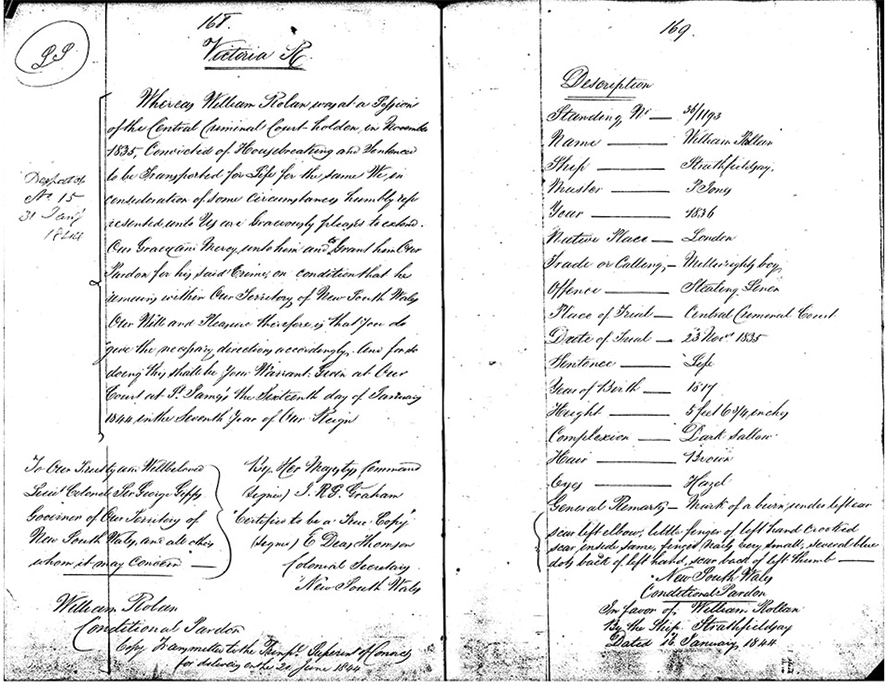 168.
Victoria R.
Whereas William Rolan, was at a Session
of the Central Criminal Court holden, in November
1835, Convicted of Housebreaking and Sentenced
to be Transported for Life for the same We, in
consideration of some Circumstances humbly rep
resented unto Us are Graciously pleased to extend
Our Grace and Mercy unto him and to Grant him Our
Pardon for his said Crime, on condition that he
remains within Our Territory of New South Wales
Our Will and Pleasure therefore is that you do
give the necessary directions accordingly. And for so
doing this shall be Your Warrant. Given at Our
Court at St. James's the Sixteenth day of January
1844, in the Seventh Year of Our Reign
Despatch
No. 15
31 Jany
1844
To Our Trusty and Wellbeloved
Lieut Colonel Sir George Gipps
Governor of Our Territory of
New South Wales, and all others
whom it may Concern
By Her Majesty's Command
(signed) J. R. G. Graham
"Certified to be a True Copy"
(signed) E Deas Thomson
Colonial Secretary
New South Wales
William Rolan
Conditional Pardon
Copy Transmitted to the Superint of Convicts
for delivery on the 20, June 1844
169.
Description
Standing No — 36/1193
Name — William Rollan
Ship — Strathfieldsay,
Master — P. Jones
Year — 1836
Native Place — London
Trade or Calling, — Millwrights boy
Offence — Stealing Linen
Place of Trial — Central Criminal Court
Date of Trial — 23 Novr 1835
Sentence — Life
Year of Birth — 1817
Height — 5 feet 6 3/4 inches
Complexion — Dark Sallow
Hair — Brown
Eyes — Hazel
General Remarks — Mark of a burn under left ear
scar left elbow, little finger of left hand crooked
scar inside same, finger nails very small, several blue
dots back of left hand, scar back of left thumb —
New South Wales
Conditional Pardon
In favor of William Rollan
By the Ship Strathfieldsay
Dated 16 January 1844